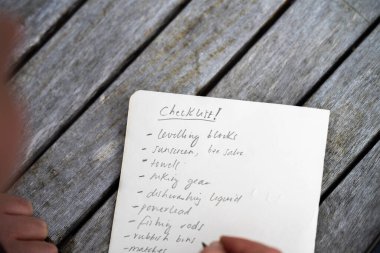 Checklist!
- levelling blocks
- sunscreen, bite salve
- towell
- hiking gear
- dishwashing liquid
- powerlead
- fishing rods
- rubbish bins
- matches